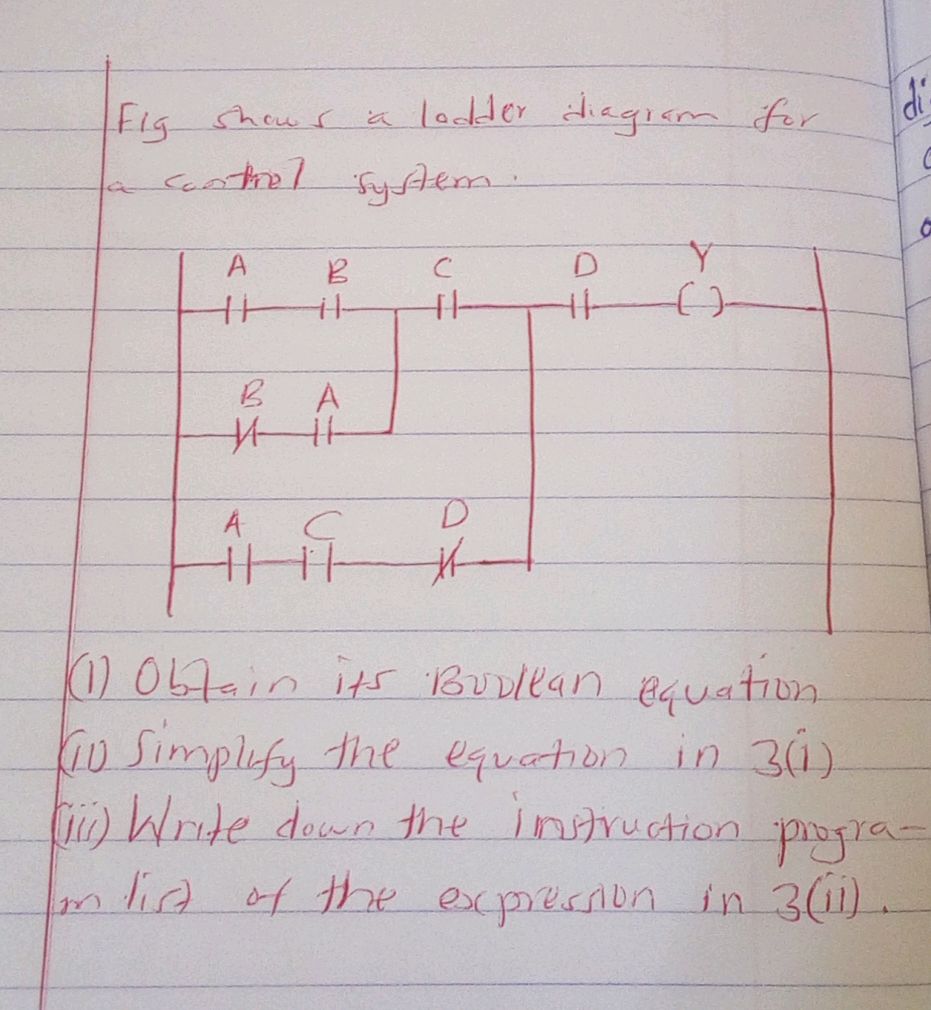 Fig shows a ladder diagram for
a control system.
A B C D Y
B A
A C D
(i) Obtain its Boolean equation
(ii) Simplify the equation in 3(i)
(iii) Write down the instruction progra-
m list of the expression in 3(ii).
di